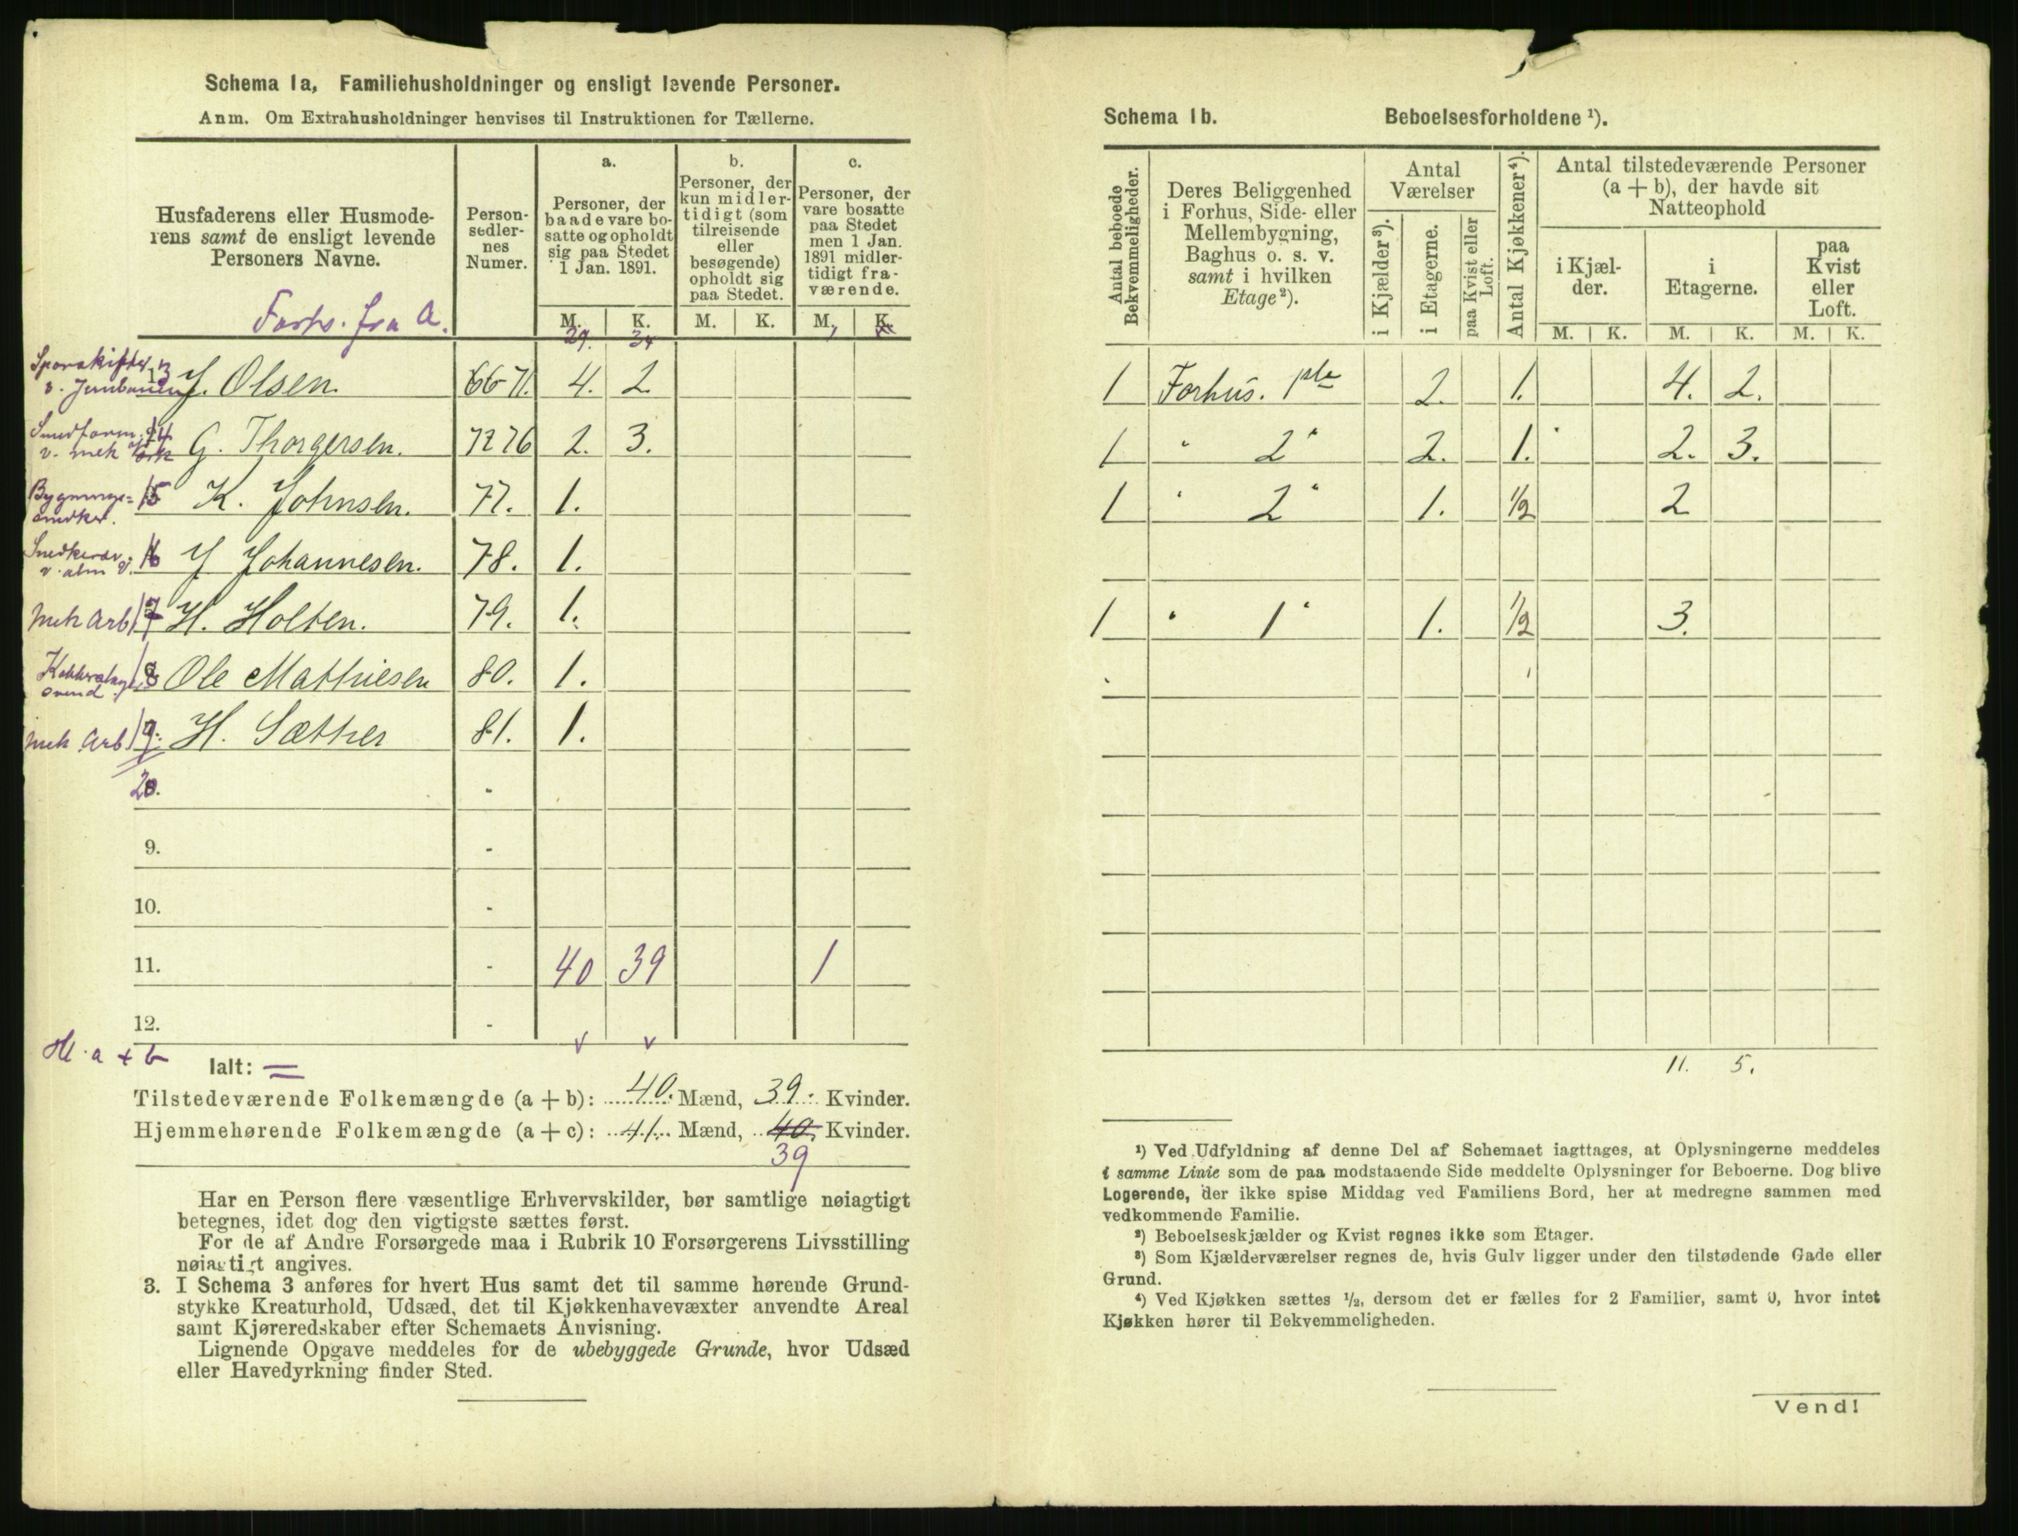 Schema 1a, Familiehusholdninger og ensligt levende Personer.
Anm. Om Extrahusholdninger henvises til Instruktionen for Tællerne.
Husfaderens eller Husmoderens samt de ensligt levende Personers Navne.
Forts. fra A.
Personsedlernes Numer.
a. Personer, der baade vare bosatte og opholdt sig paa Stedet 1 Jan. 1891.
b. Personer, der kun midlertidigt (som tilreisende eller besøgende) opholdt sig paa Stedet.
c. Personer, der vare bosatte paa Stedet men 1 Jan. 1891 midlertidigt fraværende.
M. K. M. K. M. K.
29. 34 1
13 J. Olsen. 66-71. 4. 2
14 G. Thorgersen. 72 76 2. 3.
15 K. Johnsen. 77. 1.
16 J Johannesen. 78. 1.
Mek Arb 17 H. Holten. 79. 1.
18 Ole Mathiesen 80. 1.
Mek Arb 19. H. Sæther 81. 1.
20. -
9. -
10. -
11. - 40 39 1
12. -
a + b
Ialt:
Tilstedeværende Folkemængde (a + b): 40. Mænd, 39. Kvinder.
Hjemmehørende Folkemængde (a + c): 41. Mænd, 40. Kvinder.
39
Har en Person flere væsentlige Erhvervskilder, bør samtlige nøiagtigt
betegnes, idet dog den vigtigste sættes først.
For de af Andre Forsørgede maa i Rubrik 10 Forsørgerens Livsstilling
nøiagtigt angives.
3. I Schema 3 anføres for hvert Hus samt det til samme hørende Grund-
stykke Kreaturhold, Udsæd, det til Kjøkkenhavevæxter anvendte Areal
samt Kjøreredskaber efter Schemaets Anvisning.
Lignende Opgave meddeles for de ubebyggede Grunde, hvor Udsæd
eller Havedyrkning finder Sted.
Schema 1b. Beboelsesforholdene ¹).
Antal beboede Bekvemmeligheder.
Deres Beliggenhed i Forhus, Side- eller Mellembygning, Baghus o. s. v. samt i hvilken Etage²).
Antal Værelser
i Kjælder³).
i Etagerne.
paa Kvist eller Loft.
Antal Kjøkkener⁴).
Antal tilstedeværende Personer (a + b), der havde sit Natteophold
i Kjælder.
i Etagerne.
paa Kvist eller Loft.
M. K. M. K. M. K.
1 Forhus. 2. 1. 4. 2.
1 " 2" 2. 1. 2. 3.
1 " 2" 1. 1/2 2
1 " 1" 1. 1/2 3.
11. 5.
¹) Ved Udfyldning af denne Del af Schemaet iagttages, at Oplysningerne meddeles
i samme Linie som de paa modstaaende Side meddelte Oplysninger for Beboerne. Dog blive
Logerende, der ikke spise Middag ved Familiens Bord, her at medregne sammen med
vedkommende Familie.
²) Beboelseskjælder og Kvist regnes ikke som Etager.
³) Som Kjælderværelser regnes de, hvis Gulv ligger under den tilstødende Gade eller
Grund.
⁴) Ved Kjøkken sættes ½, dersom det er fælles for 2 Familier, samt 0, hvor intet
Kjøkken hører til Bekvemmeligheden.
Vend!